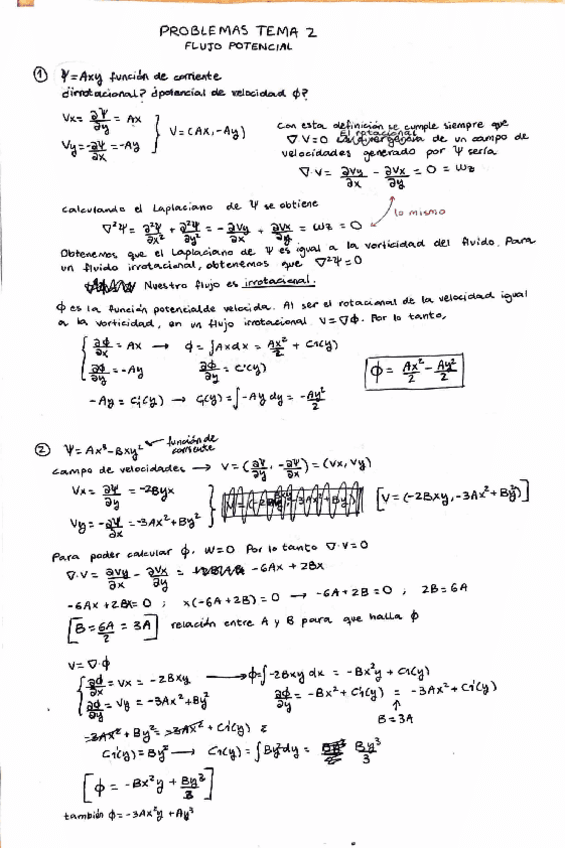 PROBLEMAS TEMA 2
FLUJO POTENCIAL
① Ψ=Axy función de corriente
¿irrotacional? ¿potencial de velocidad ϕ?
Vx= ∂Ψ/∂y = AX
Vy=-∂Ψ/∂x =-Ay
V=(AX,-Ay)
con esta definición se cumple siempre que
∇·V=0 El rotacional de un campo de
velocidades generado por Ψ sería
∇·V = ∂Vy/∂x - ∂Vx/∂y = 0 = ωz
lo mismo
calculando el Laplaciano de Ψ se obtiene
∇²Ψ= ∂²Ψ/∂x² + ∂²Ψ/∂y² = -∂Vy/∂x + ∂Vx/∂y = ωz = 0
Obtenemos que el Laplaciano de Ψ es igual a la vorticidad del fluido. Para
un fluido irrotacional, obtenemos que ∇²Ψ=0
Nuestro flujo es irrotacional.
ϕ es la función potencial de velocida. Al ser el rotacional de la velocidad igual
a la vorticidad, en un flujo irrotacional V=∇ϕ. Por lo tanto,
∂ϕ/∂x = AX → ϕ=∫Axdx = Ax²/2 + C1(y)
∂ϕ/∂y =-Ay
∂ϕ/∂y = C'(y)
ϕ = Ax²/2 - Ay²/2
-Ay = C1'(y) → C1(y)=∫-Ay dy = -Ay²/2
② Ψ=Ax³-Bxy² ← función de corriente
campo de velocidades → V=(∂Ψ/∂y, -∂Ψ/∂x)=(Vx,Vy)
Vx= ∂Ψ/∂y =-2Byx
Vy=-∂Ψ/∂x =-3Ax²+By²
[V=(-2Bxy,-3Ax²+By²)]
Para poder calcular ϕ, W=0 Por lo tanto ∇·V=0
∇·V = ∂Vy/∂x - ∂Vx/∂y = -6Ax + 2Bx
-6Ax+2Bx=0 ; x(-6A+2B)=0 → -6A+2B=0 ; 2B=6A
[B=6A/2 = 3A] relación entre A y B para que halla ϕ
V=∇·ϕ
∂ϕ/∂x = Vx = -2Bxy → ϕ=∫-2Bxy dx = -Bx²y + C1(y)
∂ϕ/∂y = Vy = -3Ax²+By²
∂ϕ/∂y = -Bx²+C1'(y) = -3Ax²+C1'(y)
↑
B=3A
-3Ax²+By²=-3Ax²+C1'(y)
C1'(y)=By² → C1(y)=∫By²dy = By³/3
[ϕ = -Bx²y + By³/3]
también ϕ=-3Ax²y +Ay³